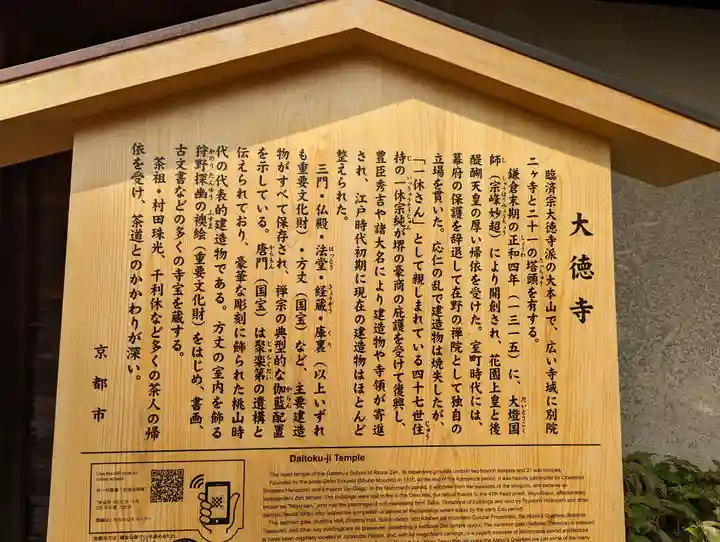 大徳寺
臨済宗大徳寺派の大本山で、広い寺域に別院
二ヶ寺と二十一の塔頭を有する。
鎌倉末期の正和四年(一三一五)に、大燈国
師(宗峰妙超)により開創され、花園上皇と後
醍醐天皇の厚い帰依を受けた。室町時代には、
幕府の保護を辞退して在野の禅院として独自の
立場を貫いた。応仁の乱で建造物は焼失したが、
「一休さん」として親しまれている四十七世住
持の一休宗純が堺の豪商の庇護を受けて復興し、
豊臣秀吉や諸大名により建造物や寺領が寄進
され、江戸時代初期に現在の建造物はほとんど
整えられた。
三門・仏殿・法堂・経蔵・庫裏(以上いずれ
も重要文化財)・方丈(国宝)など、主要建造
物がすべて保存され、禅宗の典型的な伽藍配置
を示している。唐門(国宝)は聚楽第の遺構と
伝えられており、豪華な彫刻に飾られた桃山時
代の代表的建造物である。方丈の室内を飾る
狩野探幽の襖絵(重要文化財)をはじめ、書画、
古文書などの多くの寺宝を蔵する。
茶祖・村田珠光、千利休など多くの茶人の帰
依を受け、茶道とのかかわりが深い。
京都市
Daitoku-ji Temple
The head temple of the Daitokuji School of Rinzai Zen, its expansive grounds contain two branch temples and 21 sub-temples.